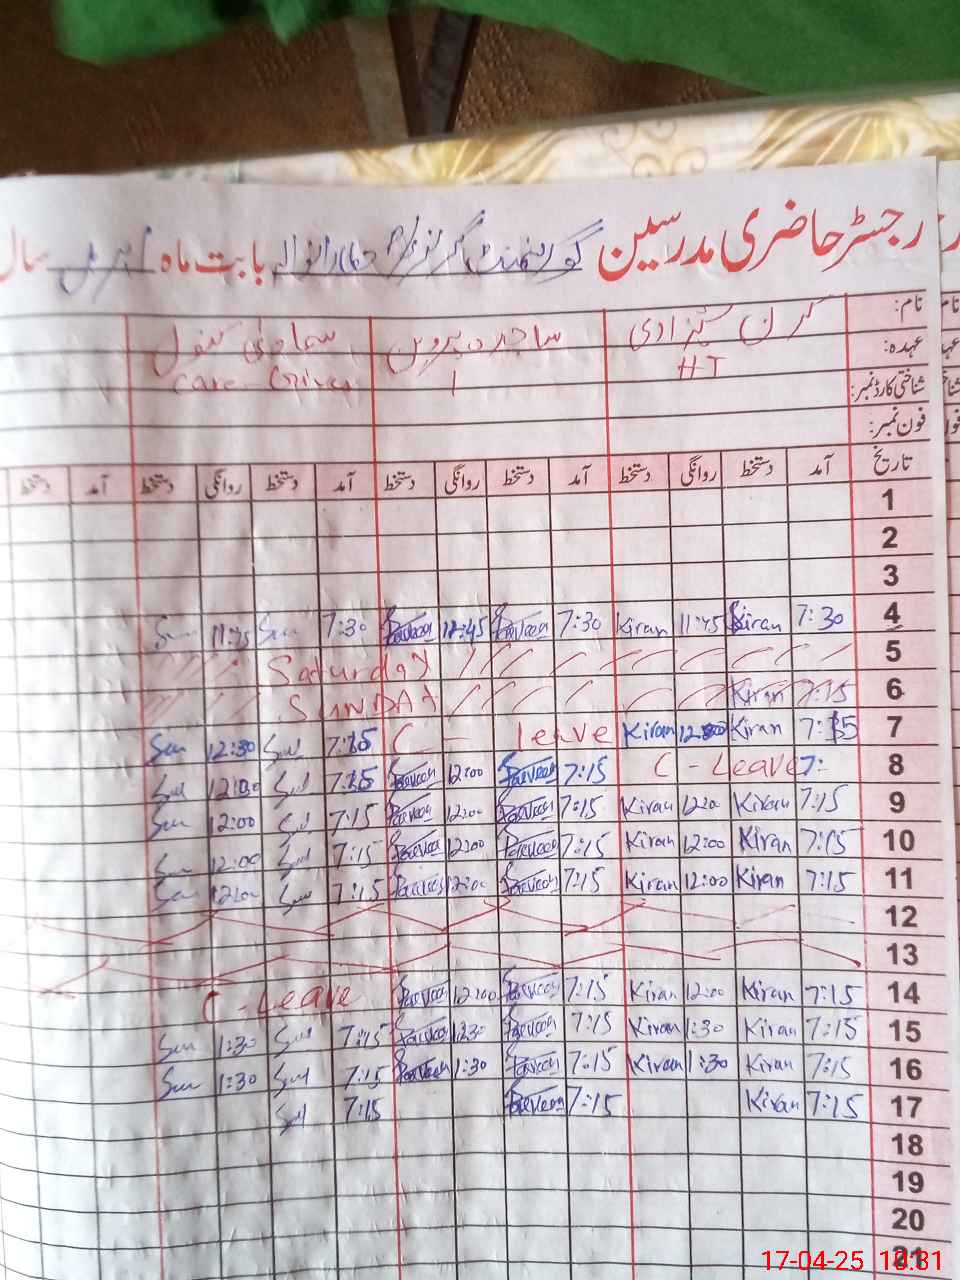 رجسٹر حاضری مدرسین گورنمنٹ گرلز بابت ماہ اپریل سال
نام: کرن شہزادی ساجدہ پروین کنول
عہدہ: HT Care-Giver
شناختی کارڈ نمبر:
فون نمبر:
تاریخ آمد دستخط روانگی دستخط آمد دستخط روانگی دستخط آمد دستخط روانگی دستخط آمد دستخط
1
2
3
4 7:30 Kiran 11:45 Kiran 7:30 Parveen 11:45 Parveen 7:30 11:45
5 Saturday
6 7:15 Kiran SUNDAY
7 Kiran Kiran C - leave 7:15 12:30
8 7: C - Leave 7:15 Parveen 12:00 Parveen 7:15
9 7:15 Kiran 12:00 Kiran 7:15 Parveen 12:00 Parveen 7:15 12:00
10 7:15 Kiran 12:00 Kiran 7:15 Parveen 12:00 Parveen 7:15 12:00
11 7:15 Kiran 12:00 Kiran 7:15 Parveen 12:00 Parveen 7:15 12:00
12
13
14 7:15 Kiran 12:00 Kiran 7:15 Parveen 12:00 Parveen C - Leave
15 7:15 Kiran 1:30 Kiran 7:15 Parveen 1:30 Parveen 7:15 1:30
16 7:15 Kiran 1:30 Kiran 7:15 Parveen 1:30 Parveen 7:15 1:30
17 7:15 Kiran 7:15 Parveen 7:15
18
19
20
21
17-04-25